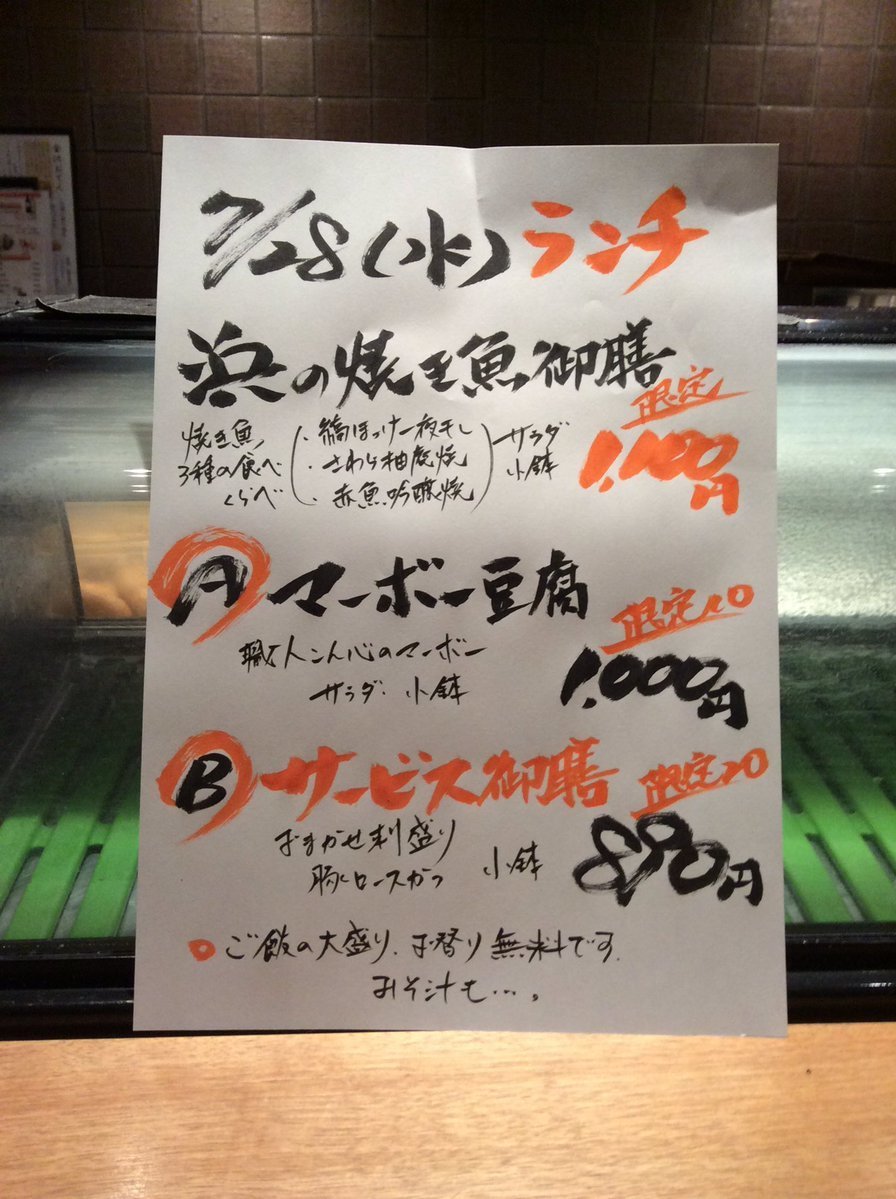 7/28(水)ランチ
浜の焼き魚御膳
限定
1,100円
焼き魚
3種の食べ
くらべ
・縞ほっけ一夜干し
・さわら柚庵焼
・赤魚吟醸焼
サラダ
小鉢
A マーボー豆腐
限定10
1,000円
職人こん心のマーボー
サラダ 小鉢
B サービス御膳
限定20
880円
おまかせ刺盛り
豚ロースかつ 小鉢
○ ご飯の大盛り、お替り無料です。
みそ汁も…。